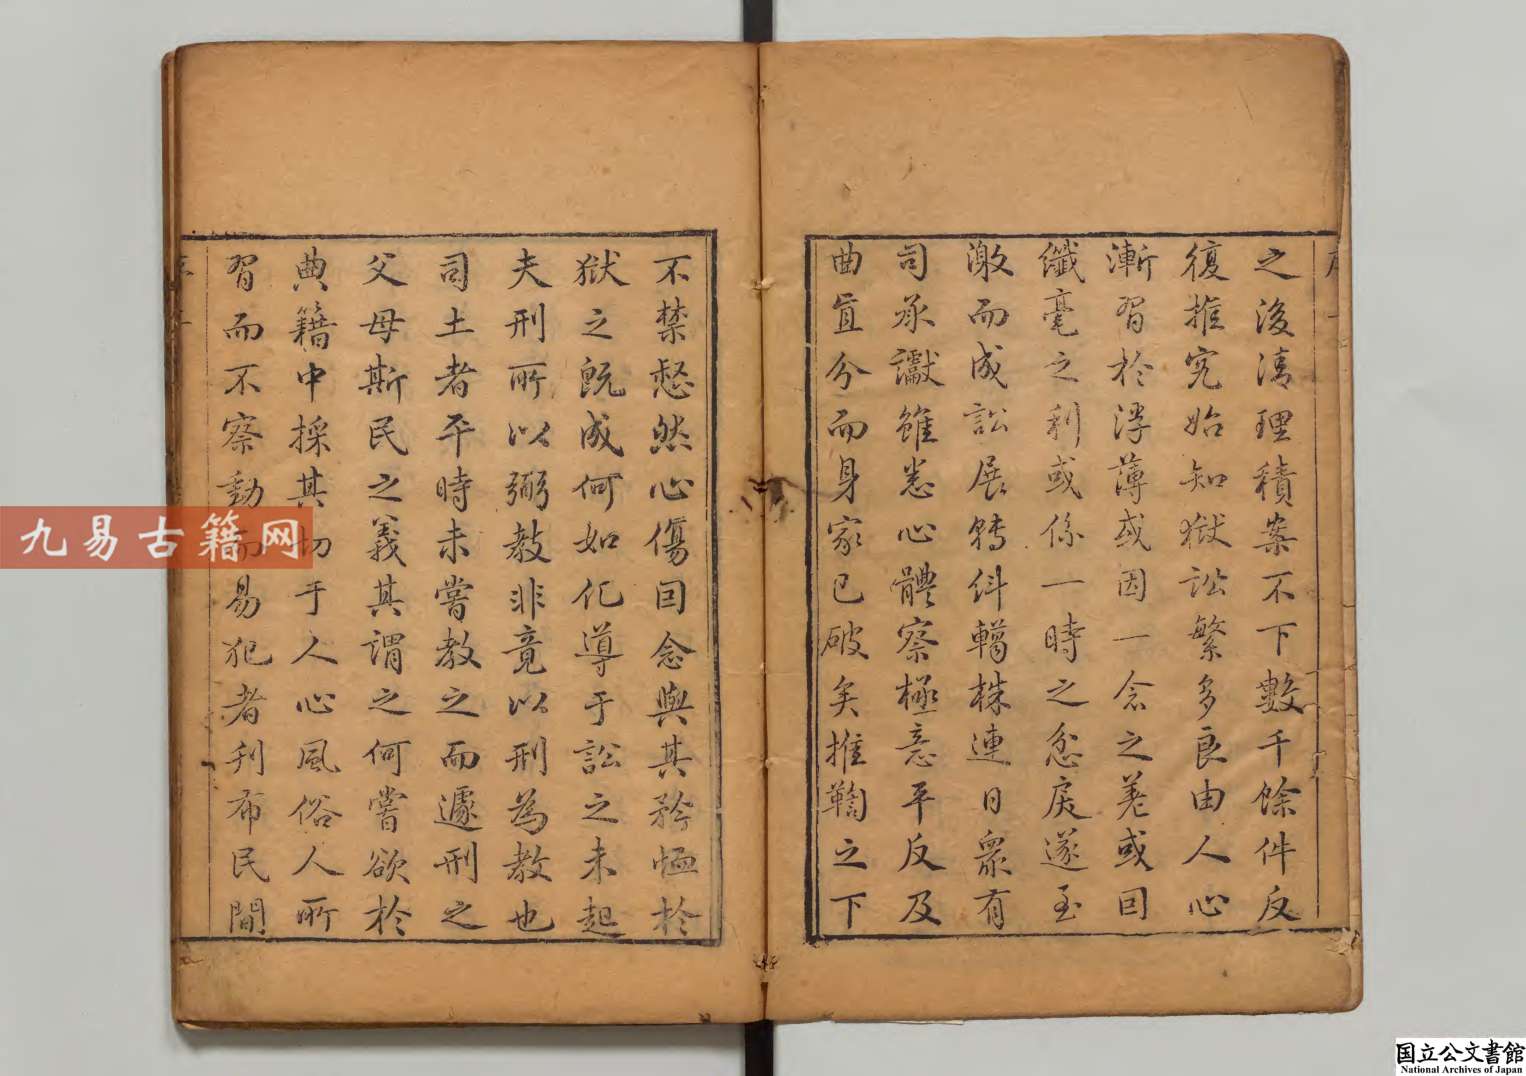 之後清理積案不下數千餘件反
復推究始知獄訟繁多良由人心
漸習於浮薄或因一念之差或因
纖毫之利或係一時之忿戾遂至
激而成訟展轉糾轕株連日衆有
司承讞雖悉心體察極意平反及
曲直分而身家已破矣推鞫之下
不禁惄然心傷因念與其矜恤於
獄之既成何如化導于訟之未起
夫刑所以弼教非竟以刑為教也
司土者平時未嘗教之而遽刑之
父母斯民之義其謂之何嘗欲於
典籍中採其切于人心風俗人所
習而不察動而易犯者刋布民間
九易古籍网
国立公文書館
National Archives of Japan